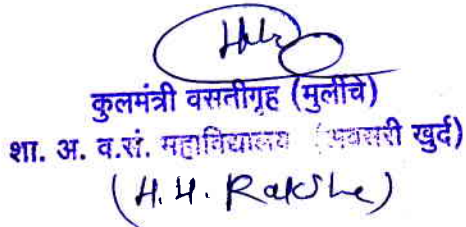 कुलमंत्री वसतीगृह (मुलींचे)
शा. अ. व.सं. महाविद्यालय (अवसरी खुर्द)
(H. H. Rakshe)